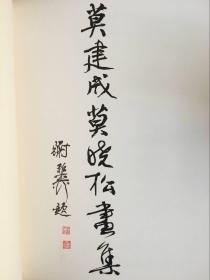 莫建成莫晓松画集
谢邦□题